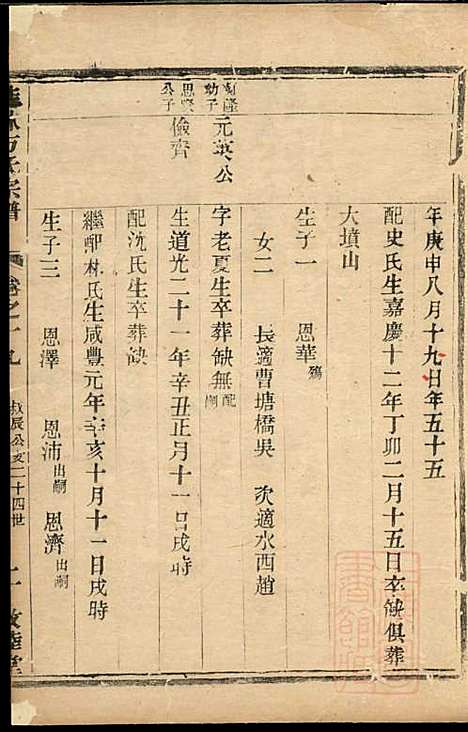 年庚申八月十九日卒年五十五
配史氏生嘉慶十二年丁卯二月十五日卒缺俱葬
大墳山
生子一 恩華 殤
女二 長適曹塘橋吳 次適水西趙
元英公
字老夏生卒葬缺無配嗣
思賢公子
儉齊
生道光二十一年辛丑正月十一日戌時
配沈氏生卒葬缺
繼配林氏生咸豐元年辛亥十月十一日戌時
生子三 恩澤 恩沛出嗣 恩濟出嗣
方氏宗譜 卷之十九 叔辰公亥二十四世 二 敦睦堂